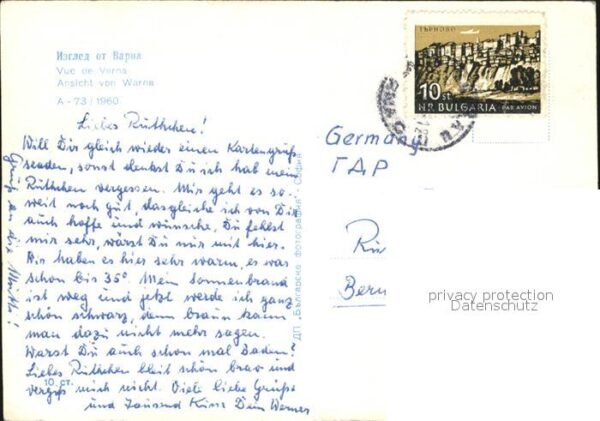 Изглед от Варна
Vue de Verna
Ansicht von Warna
A - 73 / 1960
Liebes Ruthchen!
Will Dir gleich wieder einen Kartengruß
senden, sonst denkst Du ich hab mein
Ruthchen vergessen. Mir geht es so-
weit noch gut, dasgleiche ich von Dir
auch hoffe und wünsche. Du fehlst
mir sehr, wärst Du nur mit hier.
Wir haben es hier sehr warm, es war
schon bis 35°. Mein Sonnenbrand
ist weg und jetzt werde ich ganz
schön schwarz, denn braun kann
man dazu nicht mehr sagen.
Warst Du auch schon mal Baden?
Liebes Ruthchen bleib schön brav und
vergiß mich nicht. Viele liebe Grüße
und Tausend Küsse Dein Werner
Gruß an die Mutti!
10 ст.
ДП „Българска фотография“ - София
ТЪРНОВО
10 st.
N.R. BULGARIA PAR AVION
Germany
ГДР
Ber
privacy protection
Datenschutz